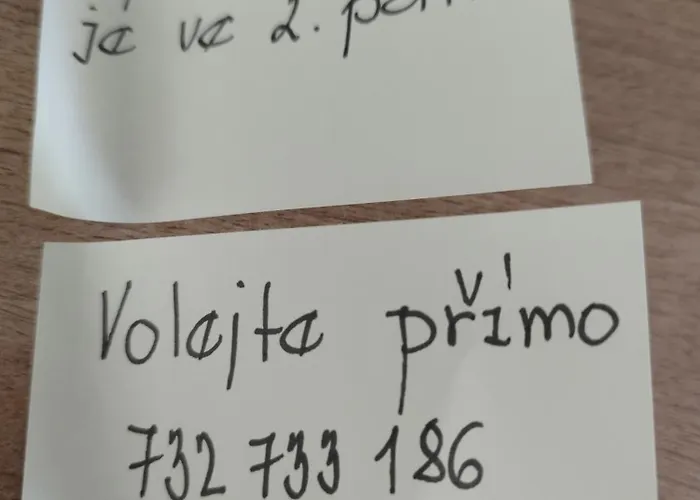 je ve 2.
Volejte přímo
732 733 186